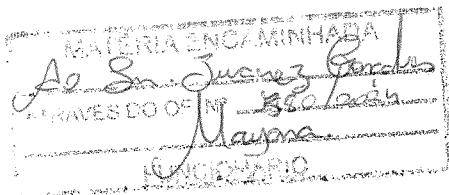 MATÉRIA ENCAMINHADA
Ao Sr. Juarez
ATRAVÉS DO OF. Nº /2024
Mayana.
FUNCIONÁRIO